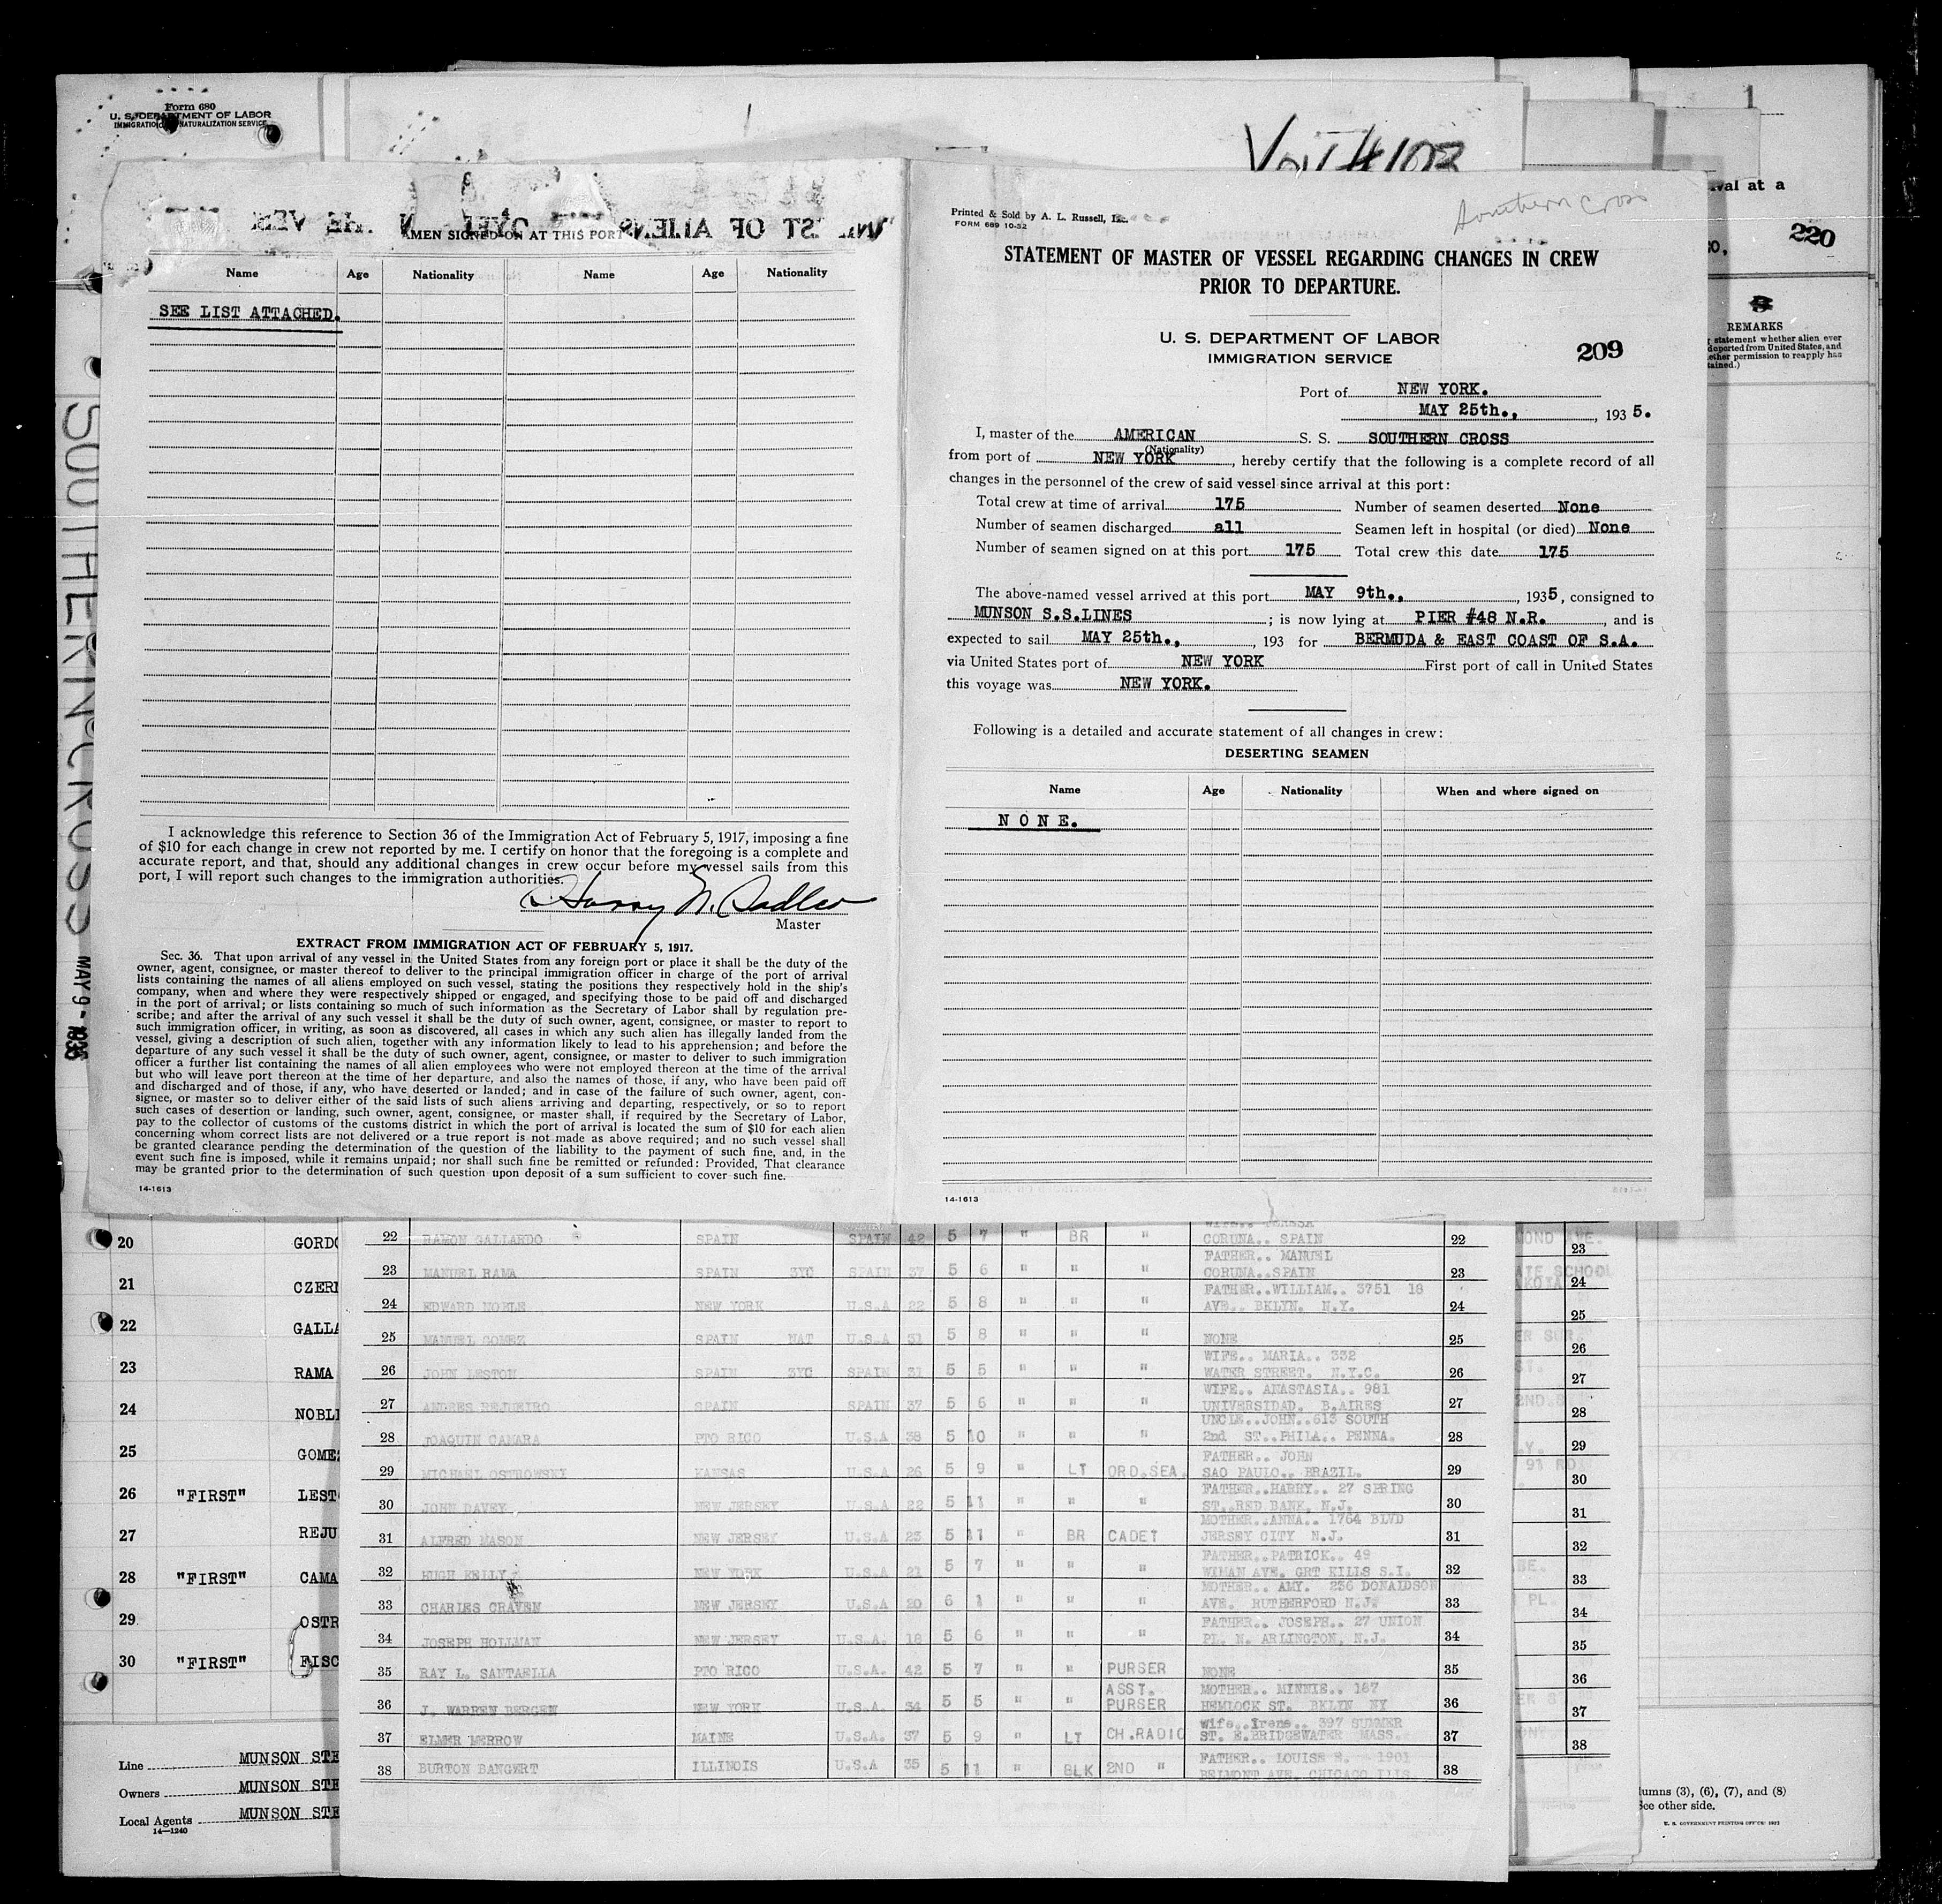 Form 680
U. S. DEPARTMENT OF LABOR
IMMIGRATION NATURALIZATION SERVICE
220
REMARKS
statement whether alien ever
deported from United States, and
permission to reapply has
SOUTHERN CROSS
MAY 9 - 1935
AMEN SIGNED ON AT THIS PORT
Name Age Nationality Name Age Nationality
SEE LIST ATTACHED.
I acknowledge this reference to Section 36 of the Immigration Act of February 5, 1917, imposing a fine
of $10 for each change in crew not reported by me. I certify on honor that the foregoing is a complete and
accurate report, and that, should any additional changes in crew occur before my vessel sails from this
port, I will report such changes to the immigration authorities.
Master
EXTRACT FROM IMMIGRATION ACT OF FEBRUARY 5, 1917.
Sec. 36. That upon arrival of any vessel in the United States from any foreign port or place it shall be the duty of the
owner, agent, consignee, or master thereof to deliver to the principal immigration officer in charge of the port of arrival
lists containing the names of all aliens employed on such vessel, stating the positions they respectively hold in the ship's
company, when and where they were respectively shipped or engaged, and specifying those to be paid off and discharged
in the port of arrival; or lists containing so much of such information as the Secretary of Labor shall by regulation pre-
scribe; and after the arrival of any such vessel it shall be the duty of such owner, agent, consignee, or master to report to
such immigration officer, in writing, as soon as discovered, all cases in which any such alien has illegally landed from the
vessel, giving a description of such alien, together with any information likely to lead to his apprehension; and before the
departure of any such vessel it shall be the duty of such owner, agent, consignee, or master to deliver to such immigration
officer a further list containing the names of all alien employees who were not employed thereon at the time of the arrival
but who will leave port thereon at the time of her departure, and also the names of those, if any, who have been paid off
and discharged and of those, if any, who have deserted or landed; and in case of the failure of such owner, agent, con-
signee, or master so to deliver either of the said lists of such aliens arriving and departing, respectively, or so to report
such cases of desertion or landing, such owner, agent, consignee, or master shall, if required by the Secretary of Labor,
pay to the collector of customs of the customs district in which the port of arrival is located the sum of $10 for each alien
concerning whom correct lists are not delivered or a true report is not made as above required; and no such vessel shall
be granted clearance pending the determination of the question of the liability to the payment of such fine, and, in the
event such fine is imposed, while it remains unpaid; nor shall such fine be remitted or refunded: Provided, That clearance
may be granted prior to the determination of such question upon deposit of a sum sufficient to cover such fine.
14-1613
Southern Cross
Printed & Sold by A. L. Russell, Inc.
FORM 689 10-32
STATEMENT OF MASTER OF VESSEL REGARDING CHANGES IN CREW
PRIOR TO DEPARTURE.
U. S. DEPARTMENT OF LABOR
IMMIGRATION SERVICE
209
Port of NEW YORK.
MAY 25th., , 193 5.
I, master of the AMERICAN S. S. SOUTHERN CROSS
(Nationality)
from port of NEW YORK , hereby certify that the following is a complete record of all
changes in the personnel of the crew of said vessel since arrival at this port:
Total crew at time of arrival 175 Number of seamen deserted None
Number of seamen discharged all Seamen left in hospital (or died) None
Number of seamen signed on at this port 175 Total crew this date 175
The above-named vessel arrived at this port MAY 9th., , 1935, consigned to
MUNSON S.S.LINES ; is now lying at PIER #48 N.R. , and is
expected to sail MAY 25th., , 193 for BERMUDA & EAST COAST OF S.A.
via United States port of NEW YORK First port of call in United States
this voyage was NEW YORK.
Following is a detailed and accurate statement of all changes in crew:
DESERTING SEAMEN
Name Age Nationality When and where signed on
NONE.
14-1613
20 GORD
21 CZER
22 GALL
23 RAMA
24 NOBL
25 GOME
26 "FIRST" LEST
27 REJU
28 "FIRST" CAMA
29 OSTR
30 "FIRST" FISC
Line MUNSON STE
Owners MUNSON STE
Local Agents MUNSON STE
14-1240
22 RAMON GALLARDO SPAIN SPAIN 42 5 7 " BR " CORUNA.. SPAIN 22
23 MANUEL RAMA SPAIN 3YG SPAIN 37 5 6 " " " FATHER.. MANUEL CORUNA..SPAIN 23
24 EDWARD NOBLE NEW YORK U.S.A 22 5 8 " " " FATHER..WILLIAM.. 3751 18 AVE.. BKLYN. N.Y. 24
25 MANUEL GOMEZ SPAIN NAT U.S.A 31 5 8 " " " NONE 25
26 JOHN LESTON SPAIN 3YG SPAIN 31 5 5 " " " WIFE.. MARIA.. 332 WATER STREET. N.Y.C. 26
27 ANDRES REJUEIRO SPAIN SPAIN 37 5 6 " " " WIFE.. ANASTASIA.. 981 UNIVERSIDAD. B.AIRES 27
28 JOAQUIN CAMARA PTO RICO U.S.A 38 5 10 " " " UNCLE..JOHN..613 SOUTH 2nd ST..PHILA.. PENNA. 28
29 MICHAEL OSTROWSKY KANSAS U.S.A 26 5 9 " LT ORD.SEA. FATHER.. JOHN SAO PAULO.. BRAZIL. 29
30 JOHN DAVEY NEW JERSEY U.S.A 22 5 11 " " " FATHER..HARRY.. 27 SPRING ST..RED BANK, N.J. 30
31 ALFRED MASON NEW JERSEY U.S.A 23 5 11 " BR CADET MOTHER..ANNA.. 1764 BLVD JERSEY CITY N.J. 31
32 HUGH KELLY NEW YORK U.S.A 21 5 7 " " " FATHER..PATRICK.. 49 WIMAN AVE. GRT KILLS S.I. 32
33 CHARLES CRAVEN NEW JERSEY U.S.A 20 6 1 " " " MOTHER.. AMY. 236 DONALDSON AVE. RUTHERFORD N.J. 33
34 JOSEPH HOLLMAN NEW JERSEY U.S.A. 18 5 6 " " " FATHER.. JOSEPH.. 27 UNION PL. N. ARLINGTON, N.J. 34
35 RAY L. SANTAELLA PTO RICO U.S.A. 42 5 7 " " PURSER NONE 35
36 J. WARREN BERGEN NEW YORK U.S.A. 34 5 5 " " ASST. PURSER MOTHER.. MINNIE.. 187 HEMLOCK ST. BKLYN NY 36
37 ELMER MERROW MAINE U.S.A. 37 5 9 " LT CH.RADIO wife..Irene.. 397 SUMMER ST. E.BRIDGEWATER MASS. 37
38 BURTON BANGERT ILLINOIS U.S.A 35 5 11 " BLK 2ND " FATHER.. LOUISE E. 1901 BELMONT AVE. CHICAGO ILLS. 38
23
24
25
26
27
28
29
30
31
32
33
34
35
36
37
38
umns (3), (6), (7), and (8)
See other side.
U. S. GOVERNMENT PRINTING OFFICE